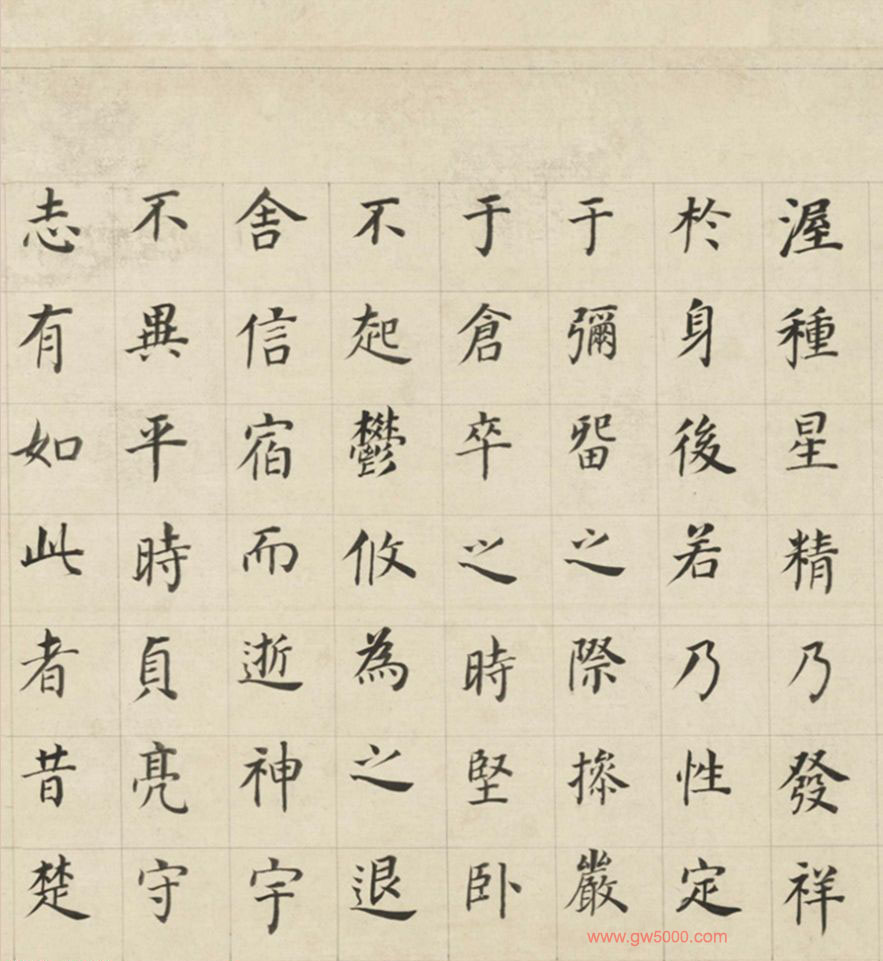 渥種星精乃發祥
於身後若乃性定
于彌留之際操嚴
于倉卒之時堅卧
不起鬱攸為之退
舍信宿而逝神宇
不異平時貞亮守
志有如此者昔楚
www.gw5000.com